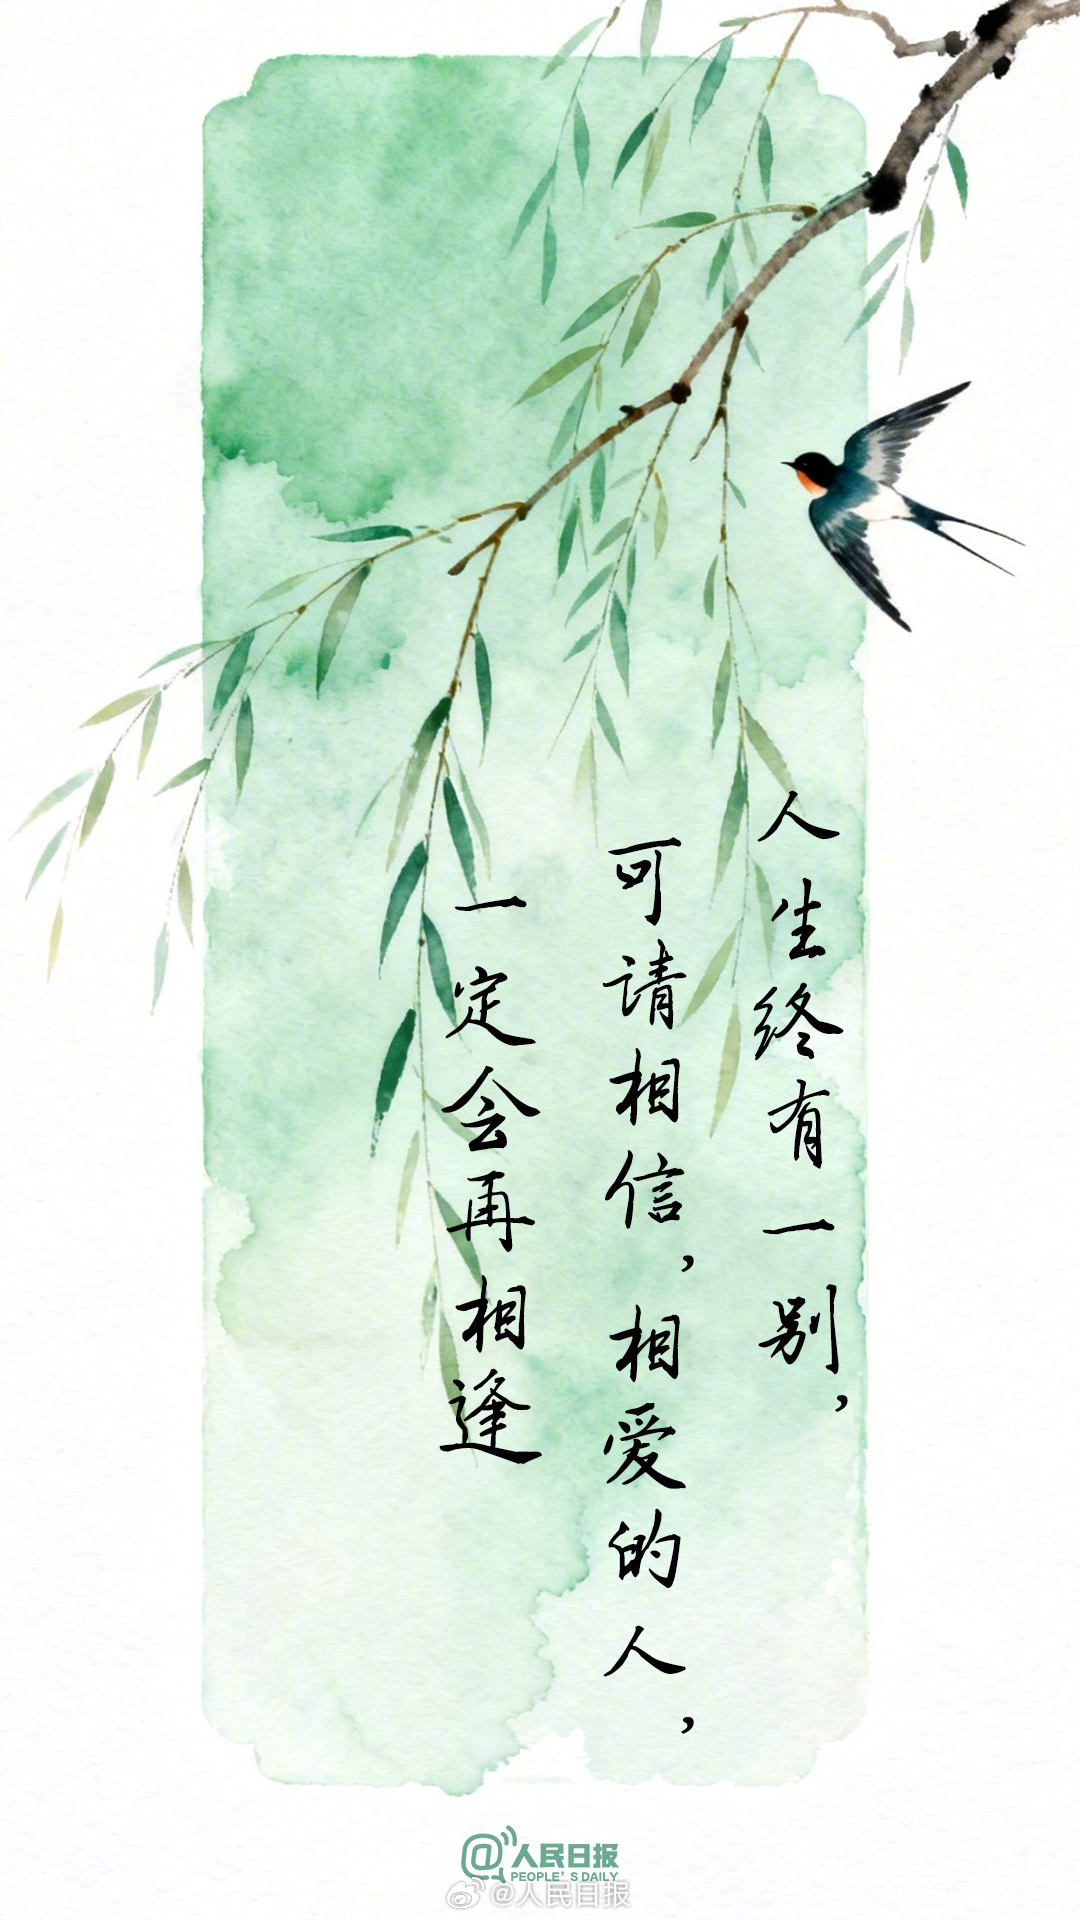 人生终有一别，
可请相信，相爱的人，
一定会再相逢
@人民日报
PEOPLE'S DAILY
@人民日报